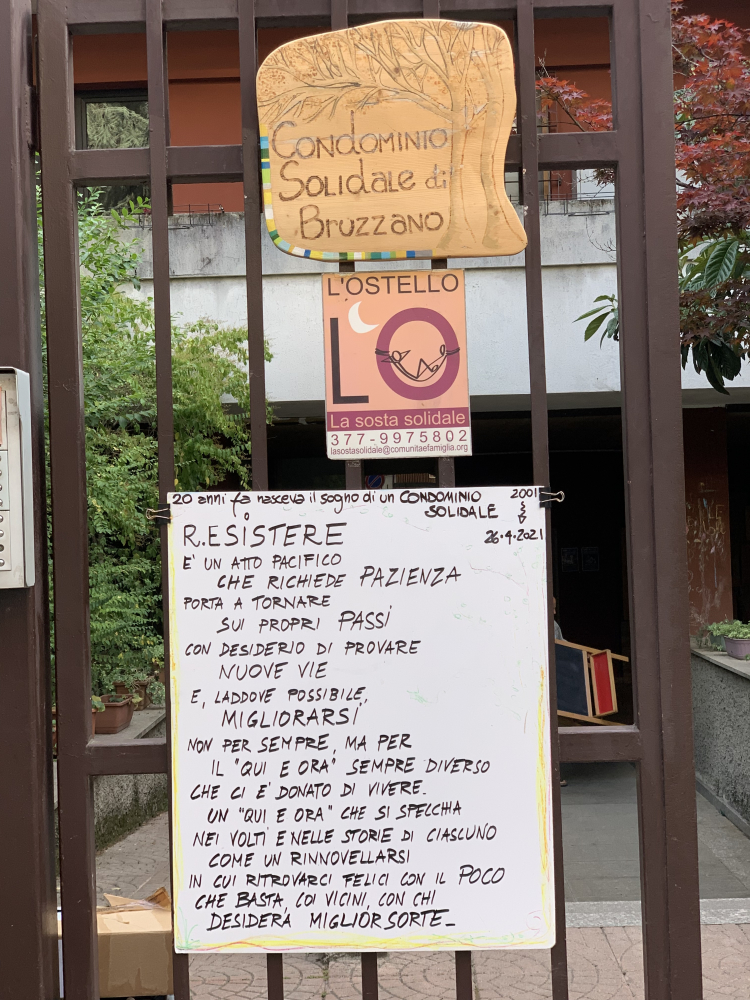 CONDOMINIO
SOLIDALE di
BRUZZANO
L'OSTELLO
L'O
La sosta solidale
377-9975802
lasostasolidale@comunitaefamiglia.org
20 anni fa nasceva il sogno di un CONDOMINIO SOLIDALE
2001
26.4.2021
R.ESISTERE
E' UN ATTO PACIFICO
CHE RICHIEDE PAZIENZA
PORTA A TORNARE
SUI PROPRI PASSI
CON DESIDERIO DI PROVARE
NUOVE VIE
E, LADDOVE POSSIBILE,
MIGLIORARSI
NON PER SEMPRE, MA PER
IL "QUI E ORA" SEMPRE DIVERSO
CHE CI E' DONATO DI VIVERE.
UN "QUI E ORA" CHE SI SPECCHIA
NEI VOLTI E NELLE STORIE DI CIASCUNO
COME UN RINNOVELLARSI
IN CUI RITROVARCI FELICI CON IL POCO
CHE BASTA, COI VICINI, CON CHI
DESIDERA MIGLIOR SORTE_